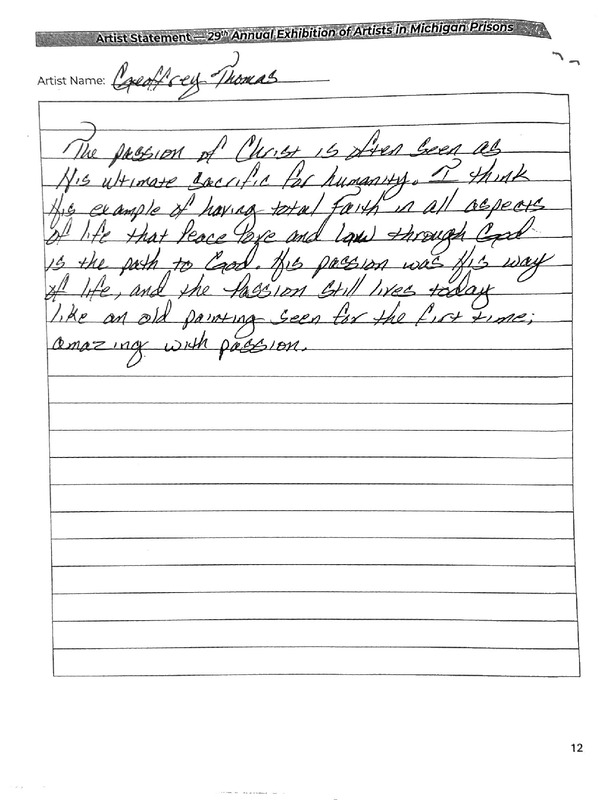 Artist Statement — 29th Annual Exhibition of Artists in Michigan Prisons
Artist Name: Geoffrey Thomas
The passion of Christ is often seen as
His ultimate sacrific for humanity. I think
His example of having total Faith in all aspects
of life that Peace Love and law through God
is the path to God. His passion was His way
of life, and the Passion still lives today
like an old painting seen for the first time;
amazing with passion.
12